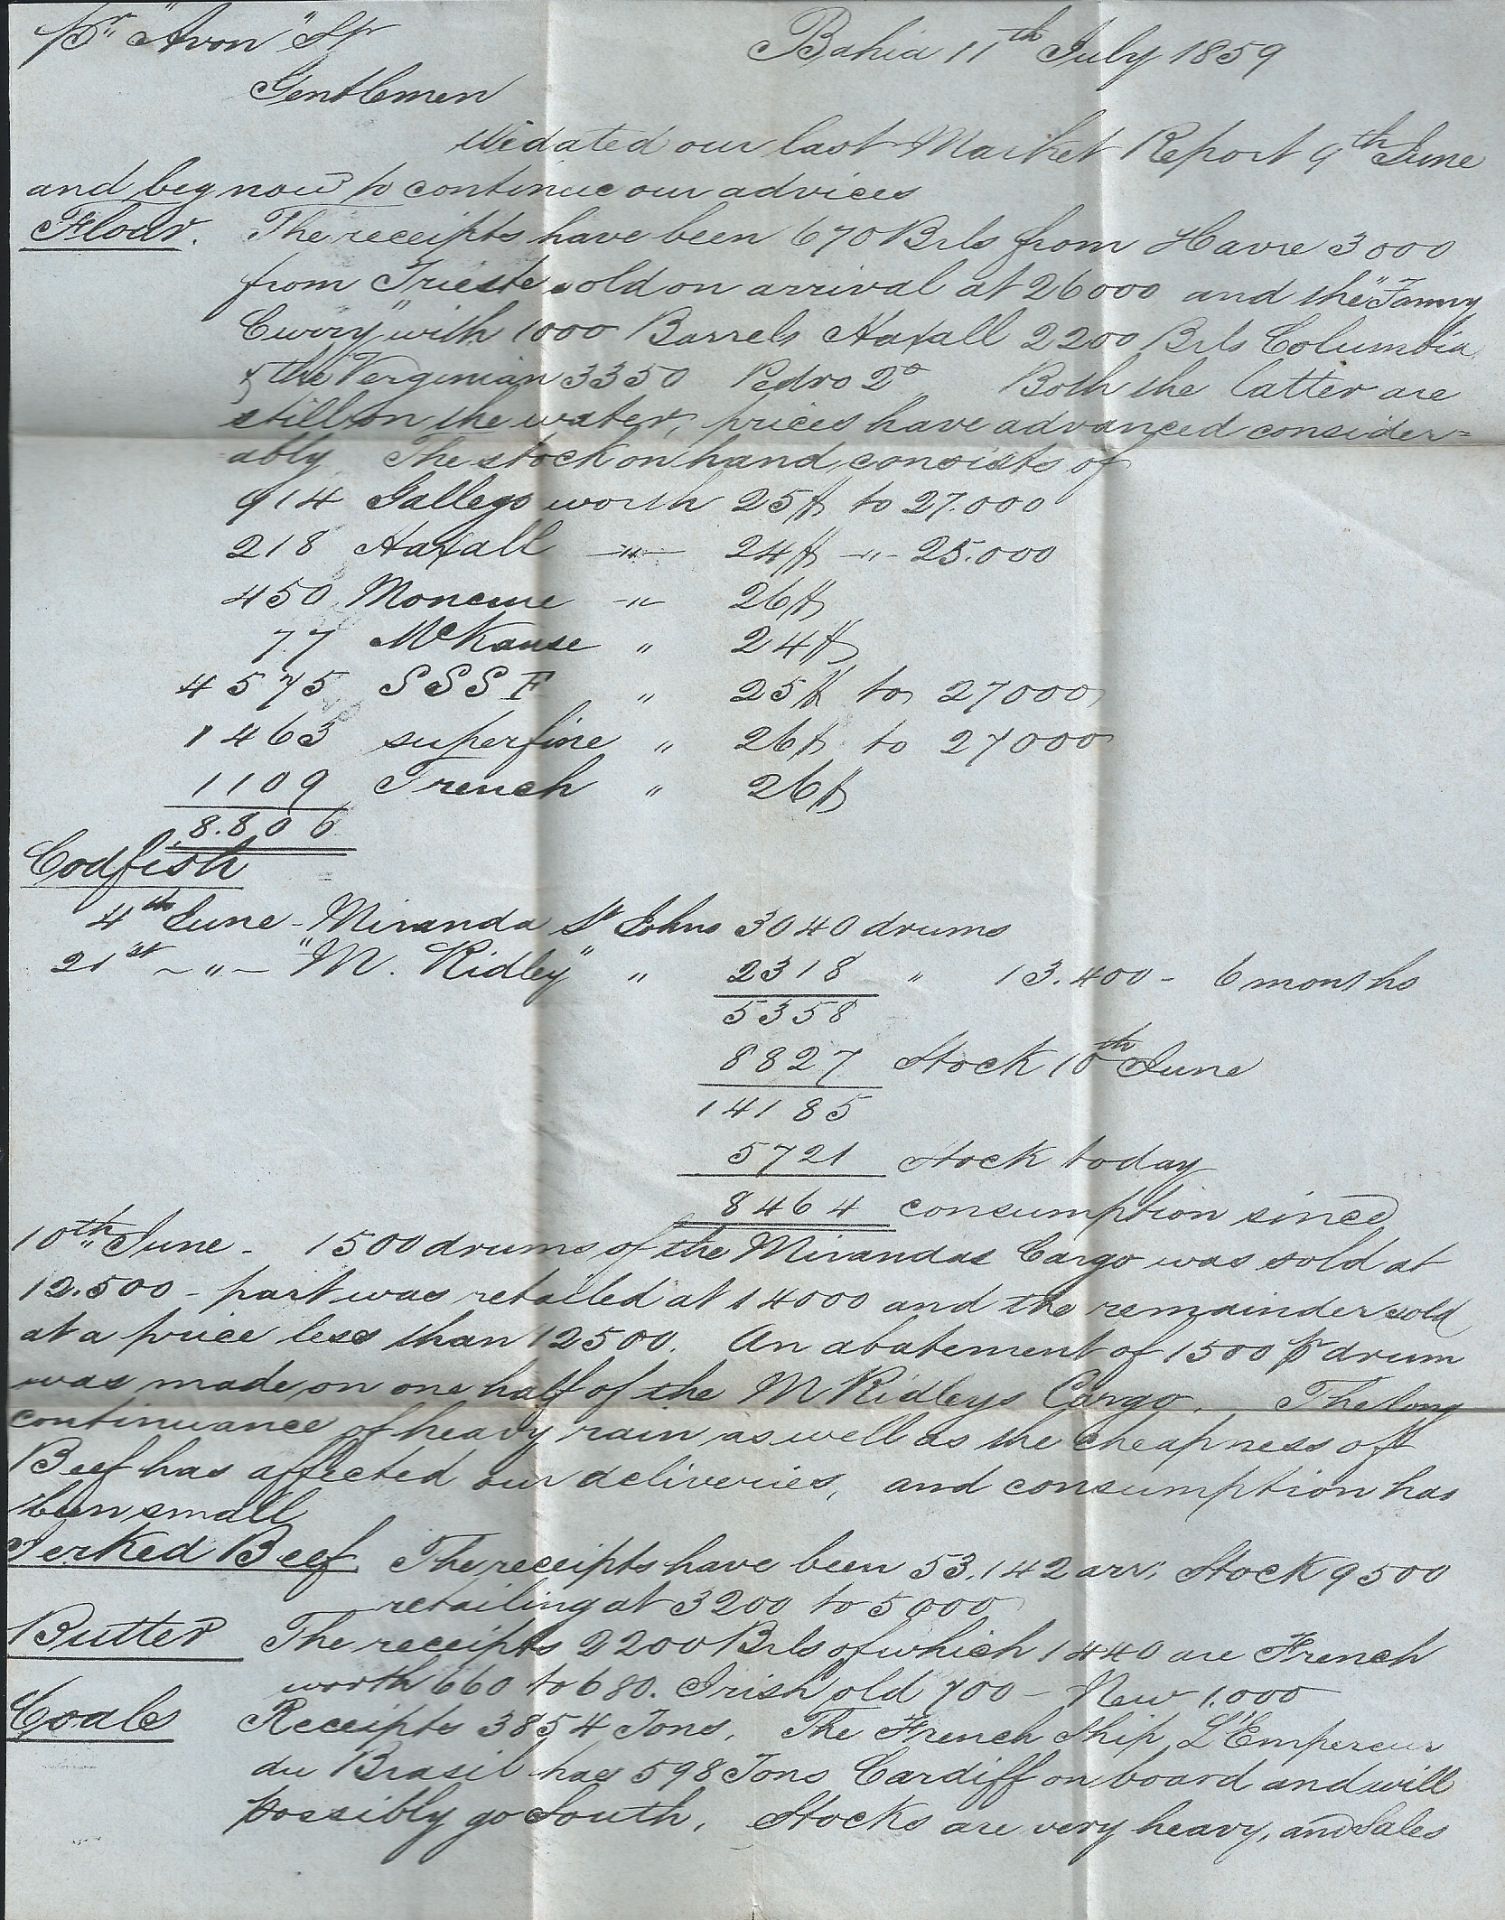 pr "Avon" Sr
Bahia 11th July 1859
Gentlemen
We dated our last Market Report 9th June
and beg now to continue our advices
Flour. The receipts have been 670 Brls from Havre 3000
from Trieste sold on arrival at 26000 and the "Fanny
Currry" with 1000 Barrels Haxall 2200 Brls Columbia
& the Verginian 3350 Pedro 2o Both the latter are
still on the water, prices have advanced consider=
ably The stock on hand, consists of
914 Gallego worth 25$ to 27.000
218 Haxall —"— 24$ -"- 25.000
450 Moncure -"- 26$
77 McKanse " 24$
4575 SSSF " 25$ to 27000
1463 superfine " 26$ to 27000
1109 French " 26$
8.806
Codfish
4th June - Miranda St Johns 3040 drums
21st -"- "M. Ridley" " 2318 " 13.400 - 6 months
5358
8827 Stock 10th June
14185
5721 Stock today
8464 consumption since
10th June - 1500 drums of the Mirandas Cargo was sold at
12.500 - part was retailed at 14000 and the remainder sold
at a price less than 12500. An abatement of 1500 pr drum
was made on one half of the M Ridleys Cargo. The long
continuance of heavy rain as well as the cheapness of
Beef has affected our deliveries, and consumption has
been small
Jerked Beef The receipts have been 53.142 arr; Stock 9500
retailing at 3200 to 5000
Butter The receipts 2200 Brls of which 1440 are French
worth 660 to 680. Irish old 700 - New 1.000
Coals Receipts 3854 Tons. The French Ship L'Empereur
du Brasil has 598 Tons Cardiff on board and will
possibly go South. Stocks are very heavy, and Sales